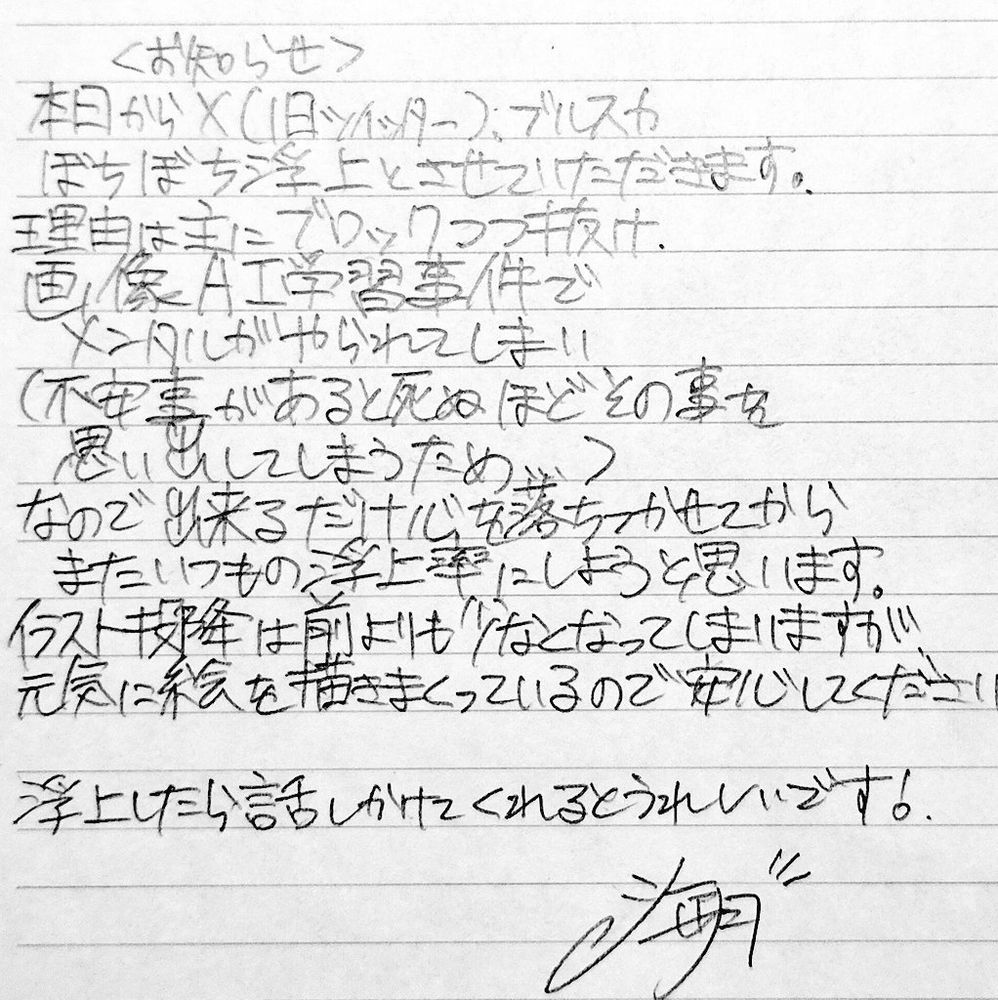 <お知らせ>
本日からX(旧ツイッター)、ブルスカ
ぼちぼち浮上とさせていただきます。
理由は主にブロックつつ抜け、
画像AI学習事件で
メンタルがやられてしまい
(不安事があると死ぬほどその事を
思い出してしまうため…)
なので出来るだけ心を落ちつかせてから
またいつもの浮上率にしようと思います。
イラスト投降は前よりも少なくなってしまいますが、
元気に絵を描きまくっているので安心してください
浮上したら話しかけてくれるとうれしいです!